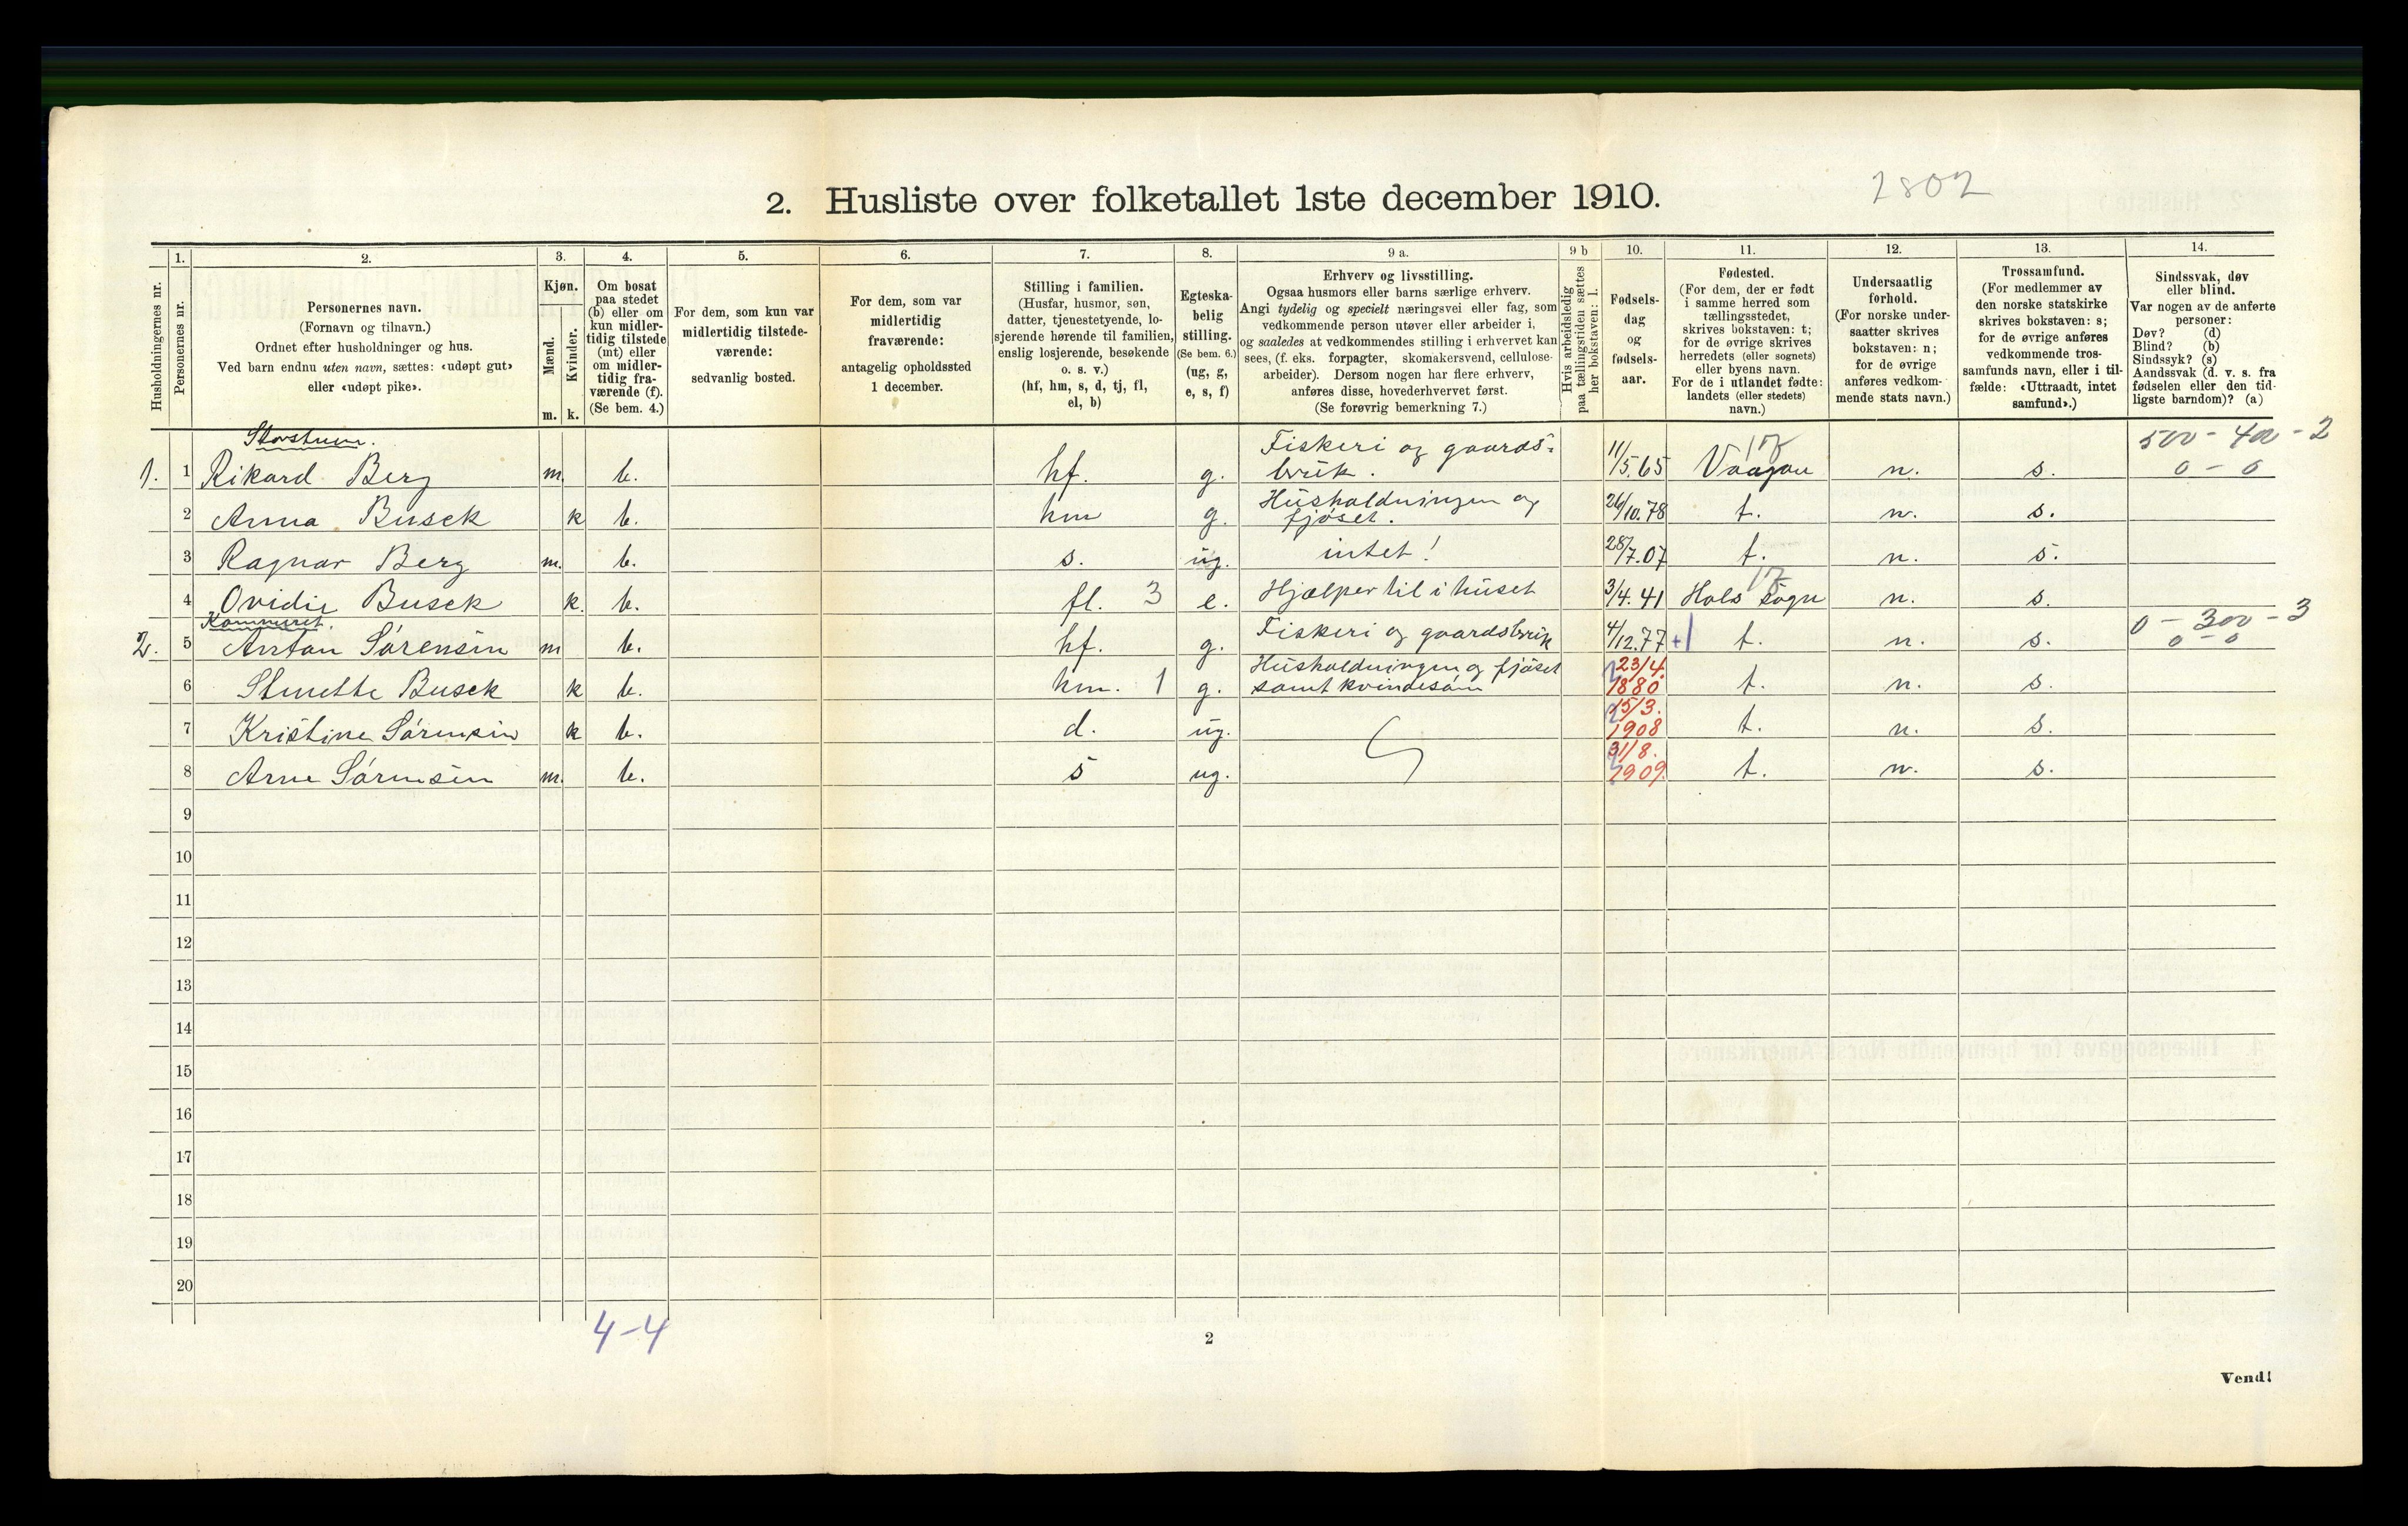 2802
2. Husliste over folketallet 1ste december 1910.
Husholdningernes nr.
1. Personernes nr.
2. Personernes navn. (Fornavn og tilnavn.) Ordnet efter husholdninger og hus. Ved barn endnu uten navn, sættes: «udøpt gut» eller «udøpt pike».
3. Kjøn. Mænd. m. Kvinder. k.
4. Om bosat paa stedet (b) eller om kun midler-tidig tilstede (mt) eller om midler-tidig fra-værende (f). (Se bem. 4.)
5. For dem, som kun var midlertidig tilstede-værende: sedvanlig bosted.
6. For dem, som var midlertidig fraværende: antagelig opholdssted 1 december.
7. Stilling i familien. (Husfar, husmor, søn, datter, tjenestetyende, lo-sjerende hørende til familien, enslig losjerende, besøkende o. s. v.) (hf, hm, s, d, tj, fl, el, b)
8. Egteska-belig stilling. (Se bem. 6.) (ug, g, e, s, f)
9 a. Erhverv og livsstilling. Ogsaa husmors eller barns særlige erhverv. Angi tydelig og specielt næringsvei eller fag, som vedkommende person utøver eller arbeider i, og saaledes at vedkommendes stilling i erhvervet kan sees, (f. eks. forpagter, skomakersvend, cellulose-arbeider). Dersom nogen har flere erhverv, anføres disse, hovederhvervet først. (Se forøvrig bemerkning 7.)
9 b Hvis arbeidsledig paa tællingstiden sættes her bokstaven: l.
10. Fødsels-dag og fødsels-aar.
11. Fødested. (For dem, der er født i samme herred som tællingsstedet, skrives bokstaven: t; for de øvrige skrives herredets (eller sognets) eller byens navn. For de i utlandet fødte: landets (eller stedets) navn.)
12. Undersaatlig forhold. (For norske under-saatter skrives bokstaven: n; for de øvrige anføres vedkom-mende stats navn.)
13. Trossamfund. (For medlemmer av den norske statskirke skrives bokstaven: s; for de øvrige anføres vedkommende tros-samfunds navn, eller i til-fælde: «Uttraadt, intet samfund».)
14. Sindssvak, døv eller blind. Var nogen av de anførte personer: Døv? (d) Blind? (b) Sindssyk? (s) Aandssvak (d. v. s. fra fødselen eller den tid-ligste barndom)? (a)
Storstuen.
1. 1 Rikard Berg m. b. hf. g. Fiskeri og gaards-bruk. 11/5.65 Vaagan 17 n. s. 500 - 400 - 2 0 - 0
2 Anna Busck k b. hm g. Husholdningen og fjøset. 26/10.78 t. n. s.
3 Ragnar Berg m. b. s. ug. intet! 28/7.07 t. n. s.
4 Ovidie Busck k. b. fl. 3 e. Hjælper til i huset 3/4.41 Hols sogn 17 n. s.
Kammeret.
2. 5 Antan Sørensen m b. hf. g. Fiskeri og gaardsbruk 4/12.77 +1 t. n. s. 0 - 300 - 3 0 - 0
6 Stinette Busck k b. hm. 1 g. Husholdningen og fjøset samt kvindesøm 23/4. 1880 t. n. s.
7 Kristine Sørensen k b. d. ug. 15/3. 1908 t. n. s.
8 Arne Sørensen m. b. s ug. 31/8. 1909. t. n. s.
9
10
11
12
13
14
15
16
17
18
19
20
4-4
2
Vend!